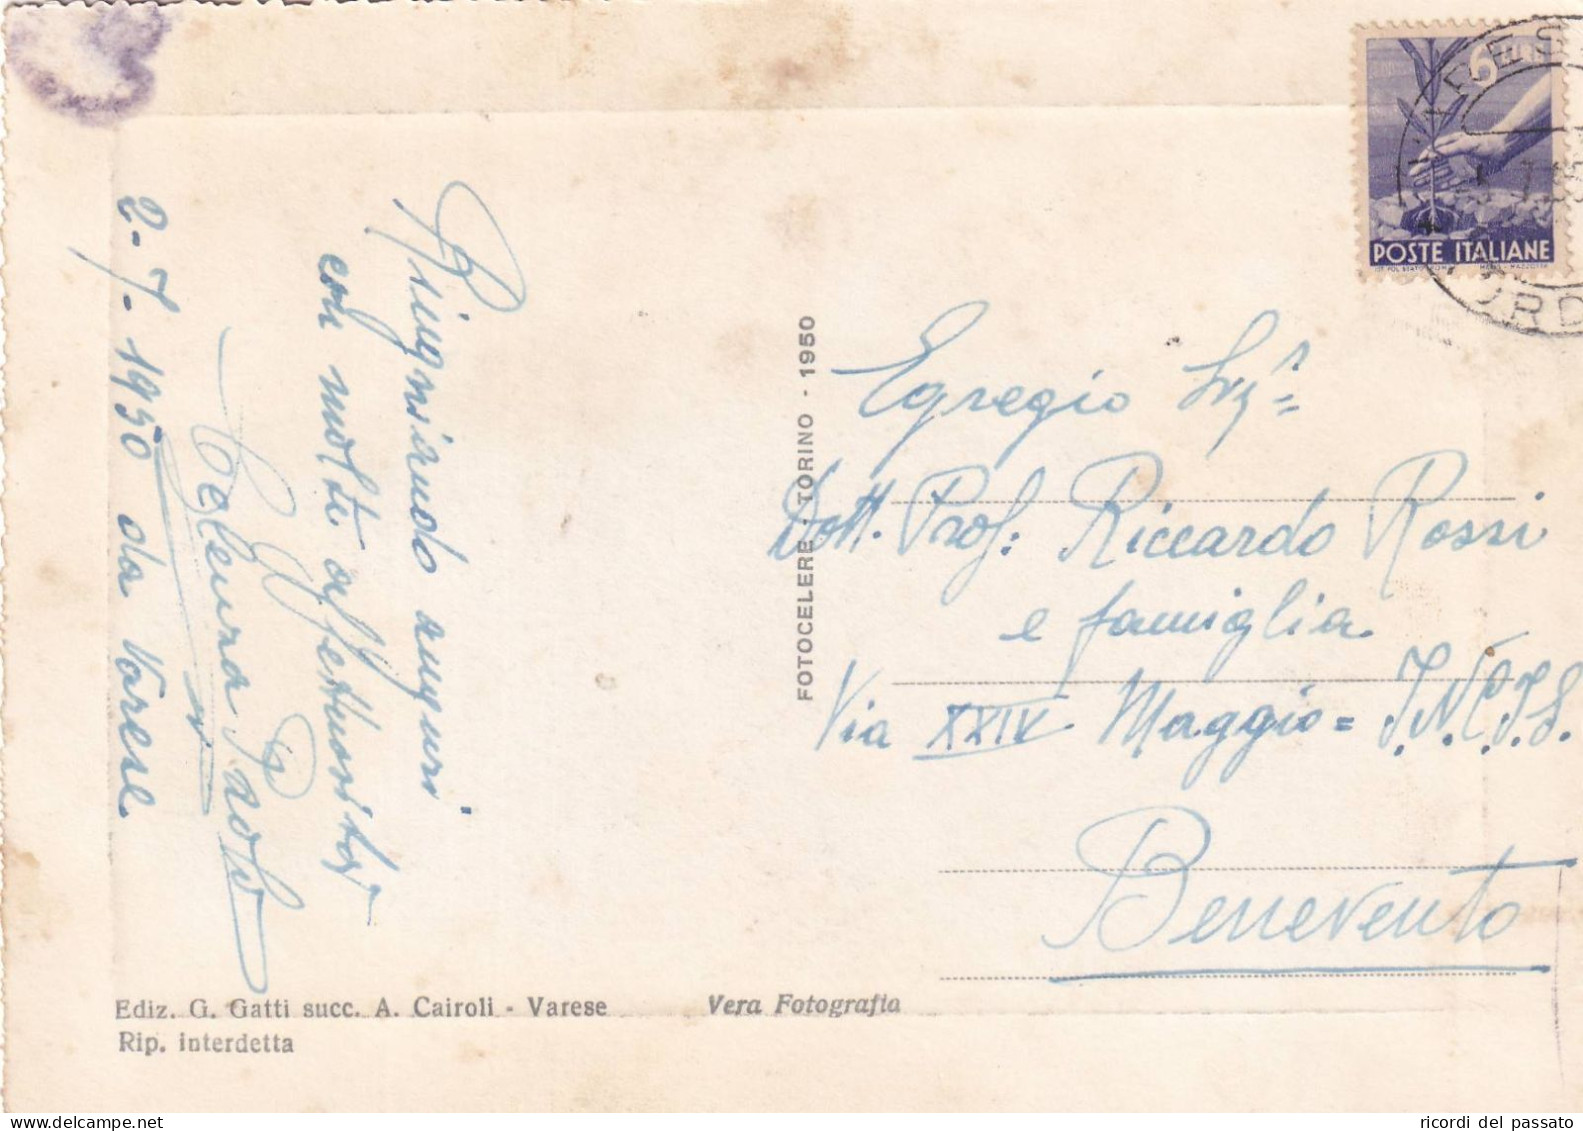 Ringraziando auguri
con molta affettuosità
Celenza Paolo
2-7-1950 da Varese
Ediz. G. Gatti succ. A. Cairoli - Varese
Rip. interdetta
Vera Fotografia
FOTOCELERE - TORINO - 1950
6 LIRE
POSTE ITALIANE
Egregio Sigr=
Dott. Prof: Riccardo Rossi
e famiglia
Via XXIV Maggio= I.N.C.I.S.
Benevento
delcampe.net
ricordi del passato